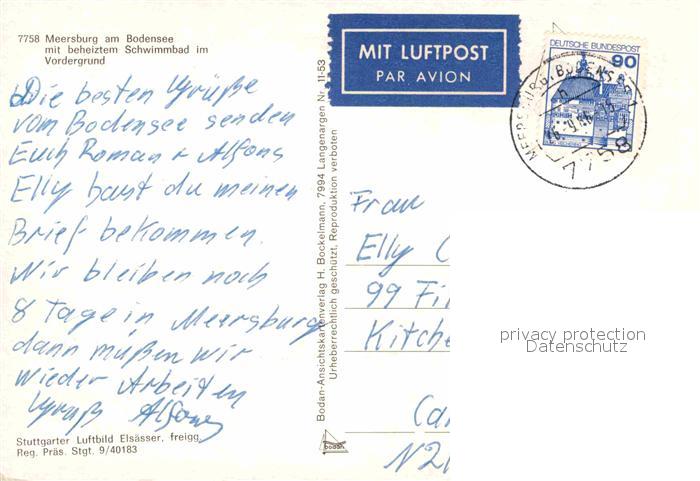 7758 Meersburg am Bodensee
mit beheiztem Schwimmbad im
Vordergrund
Die besten Grüße
vom Bodensee senden
Euch Roman + Alfons
Elly hast du meinen
Brief bekommen.
Wir bleiben noch
8 Tage in Meersburg
dann müßen wir
wieder Arbeiten
Gruß Alfons
Stuttgarter Luftbild Elsässer, freigg.
Reg. Präs. Stgt. 9/40183
Bodan-Ansichtskartenverlag H. Bockelmann, 7994 Langenargen Nr. 11-53
Urheberrechtlich geschützt, Reproduktion verboten
bodan
MIT LUFTPOST
PAR AVION
DEUTSCHE BUNDESPOST
90
MEERSBURG, BODENSEE
7758
Frau
Elly
99
Kitche
Ca
N2
privacy protection
Datenschutz